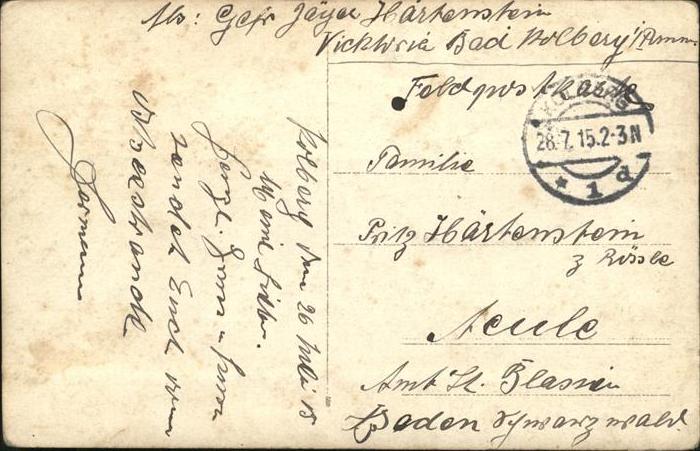 Abs: Gefr Jäger Härtenstein
Vicktoria Bad Kolberg i/Pomm.
Feldpostkarte
KOLBERG
28.7.15.2-3N
* 1 d
Familie
Fritz Härtenstein
z Rössle
Aeule
Amt St. Blasien
Baden Schwarzwald.
Kolberg den 26 Juli 15
Meine Lieben.
Herzl. Gruss u Kuss
sendet Euch vom
Ostseestrande
Hermann